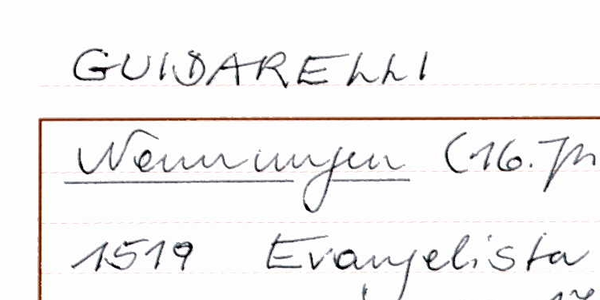 GUIDARELLI
Nennungen (16. Jh
1519 Evangelista